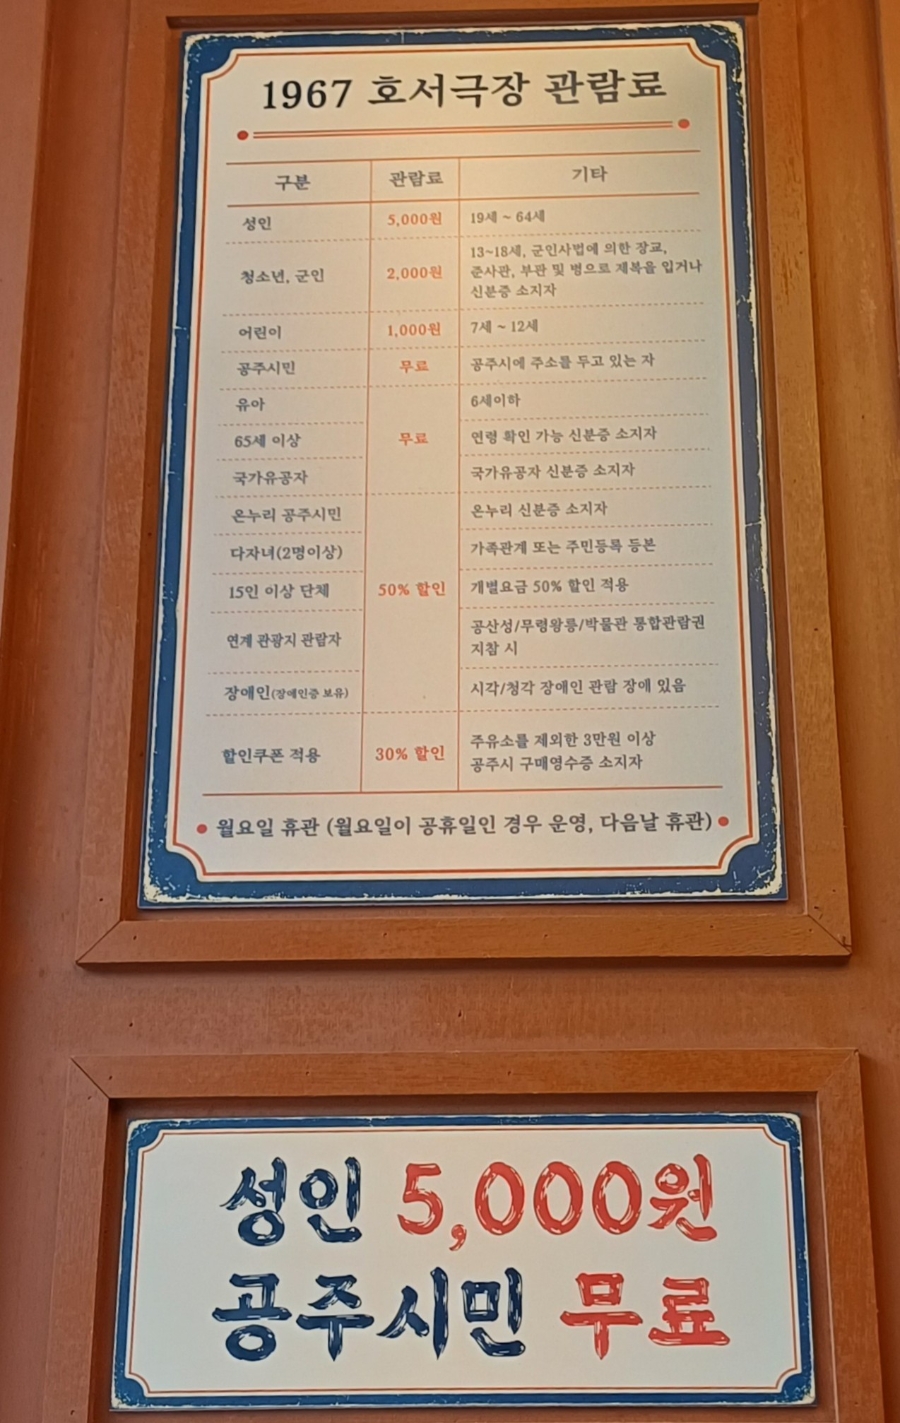 1967 호서극장 관람료
구분 관람료 기타
성인 5,000원 19세 ~ 64세
청소년, 군인 2,000원 13~18세, 군인사법에 의한 장교,
준사관, 부판 및 병으로 제복을 입거나
신분증 소지자
어린이 1,000원 7세 ~ 12세
공주시민 무료 공주시에 주소를 두고 있는 자
유아 6세이하
65세 이상 무료 연령 확인 가능 신분증 소지자
국가유공자 국가유공자 신분증 소지자
온누리 공주시민 온누리 신분증 소지자
다자녀(2명이상) 가족관계 또는 주민등록 등본
15인 이상 단체 50% 할인 개별요금 50% 할인 적용
연계 관광지 관람자 공산성/무령왕릉/박물관 통합관람권
지참 시
장애인(장애인증 보유) 시각/청각 장애인 관람 장애 있음
할인쿠폰 적용 30% 할인 주유소를 제외한 3만원 이상
공주시 구매영수증 소지자
월요일 휴관 (월요일이 공휴일인 경우 운영, 다음날 휴관)
성인 5,000원
공주시민 무료